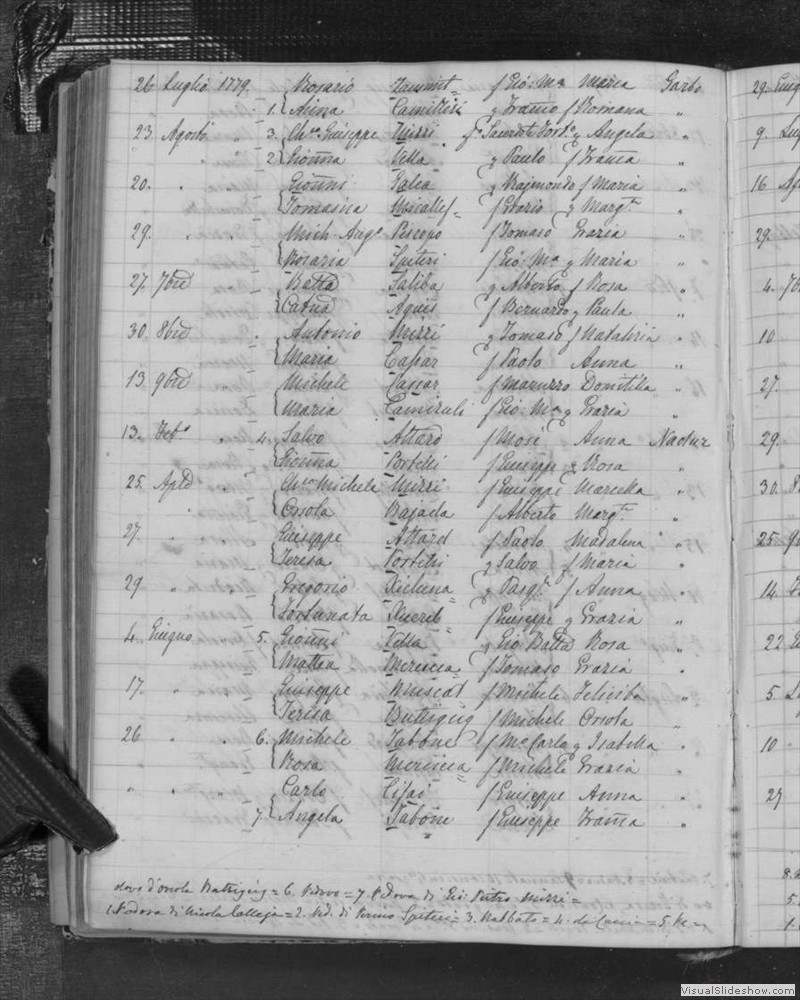 26 Luglio 1779. Rosario Tammit f Gio: Ma Maria Garbo
1. Anna Camilleri g Franco f Romana "
23 Agosto 3. Giuseppe Mizzi Angela "
2 Gionna Vella g Paulo f Franca "
20. " Gionni Galea g Raimondo f Maria "
Tomasina Micallef f Ilario g Margta "
29. " Mich Ango Piscopo f Tomaso Grazia "
Rosaria Spiteri f Gio: Ma g Maria "
27. 7bre Batta Saliba g Alberto f Rosa "
Catna Agius f Bernardo g Paula "
30. 8bre " Antonio Mizzi g Tomaso f Natalizia "
Maria Cassar f Paolo Anna "
13. 9bre Michele Cassar f Maruzzo Domitilla "
Maria f Gio: Ma g Grazia "
13. Febo " 4. Salvo Attard f Mosè Anna Nadur
Gionna Portelli f Giuseppe g Rosa "
25. Aple " Michele Mizzi f Giuseppe Marcella "
Orsola Bajada f Alberto Margta "
27. " Giuseppe Attard f Paolo Madalena "
Teresa Portelli g Salvo f Maria "
29 " Gregorio Xicluna g Pasqle f Anna "
Fortunata Xuereb f Giuseppe g Grazia "
4. Giugno 5. Gionni Vella g Gio Batta Rosa "
Mattea Mercieca f Tomaso Grazia "
17. " Giuseppe Muscat f Michele Felicita "
Teresa Buttigieg f Michele Orsola "
26 " " 6. Michele Tabone f Mo Carlo g Isabella "
Rosa Mercieca f Michele Grazia "
" " " Carlo f Giuseppe Anna "
7. Angela Tabone f Giuseppe Franca "
dovo d'Orsola Buttigieg = 6. Vedovo = 7. Vedova di Gio: Pietro Mizzi =
1. Vedova di Nicola Calleja = 2. Ved. di Spiteri = 3. Rabbato = 4. da Caccia = 5. Ve =
29 Giug
9. Lug
16 Ap
29.
4. 7b
10.
27.
29.
30.
25
14.
22
5.
10
27
8.
5.
1.
VisualSlideshow.com